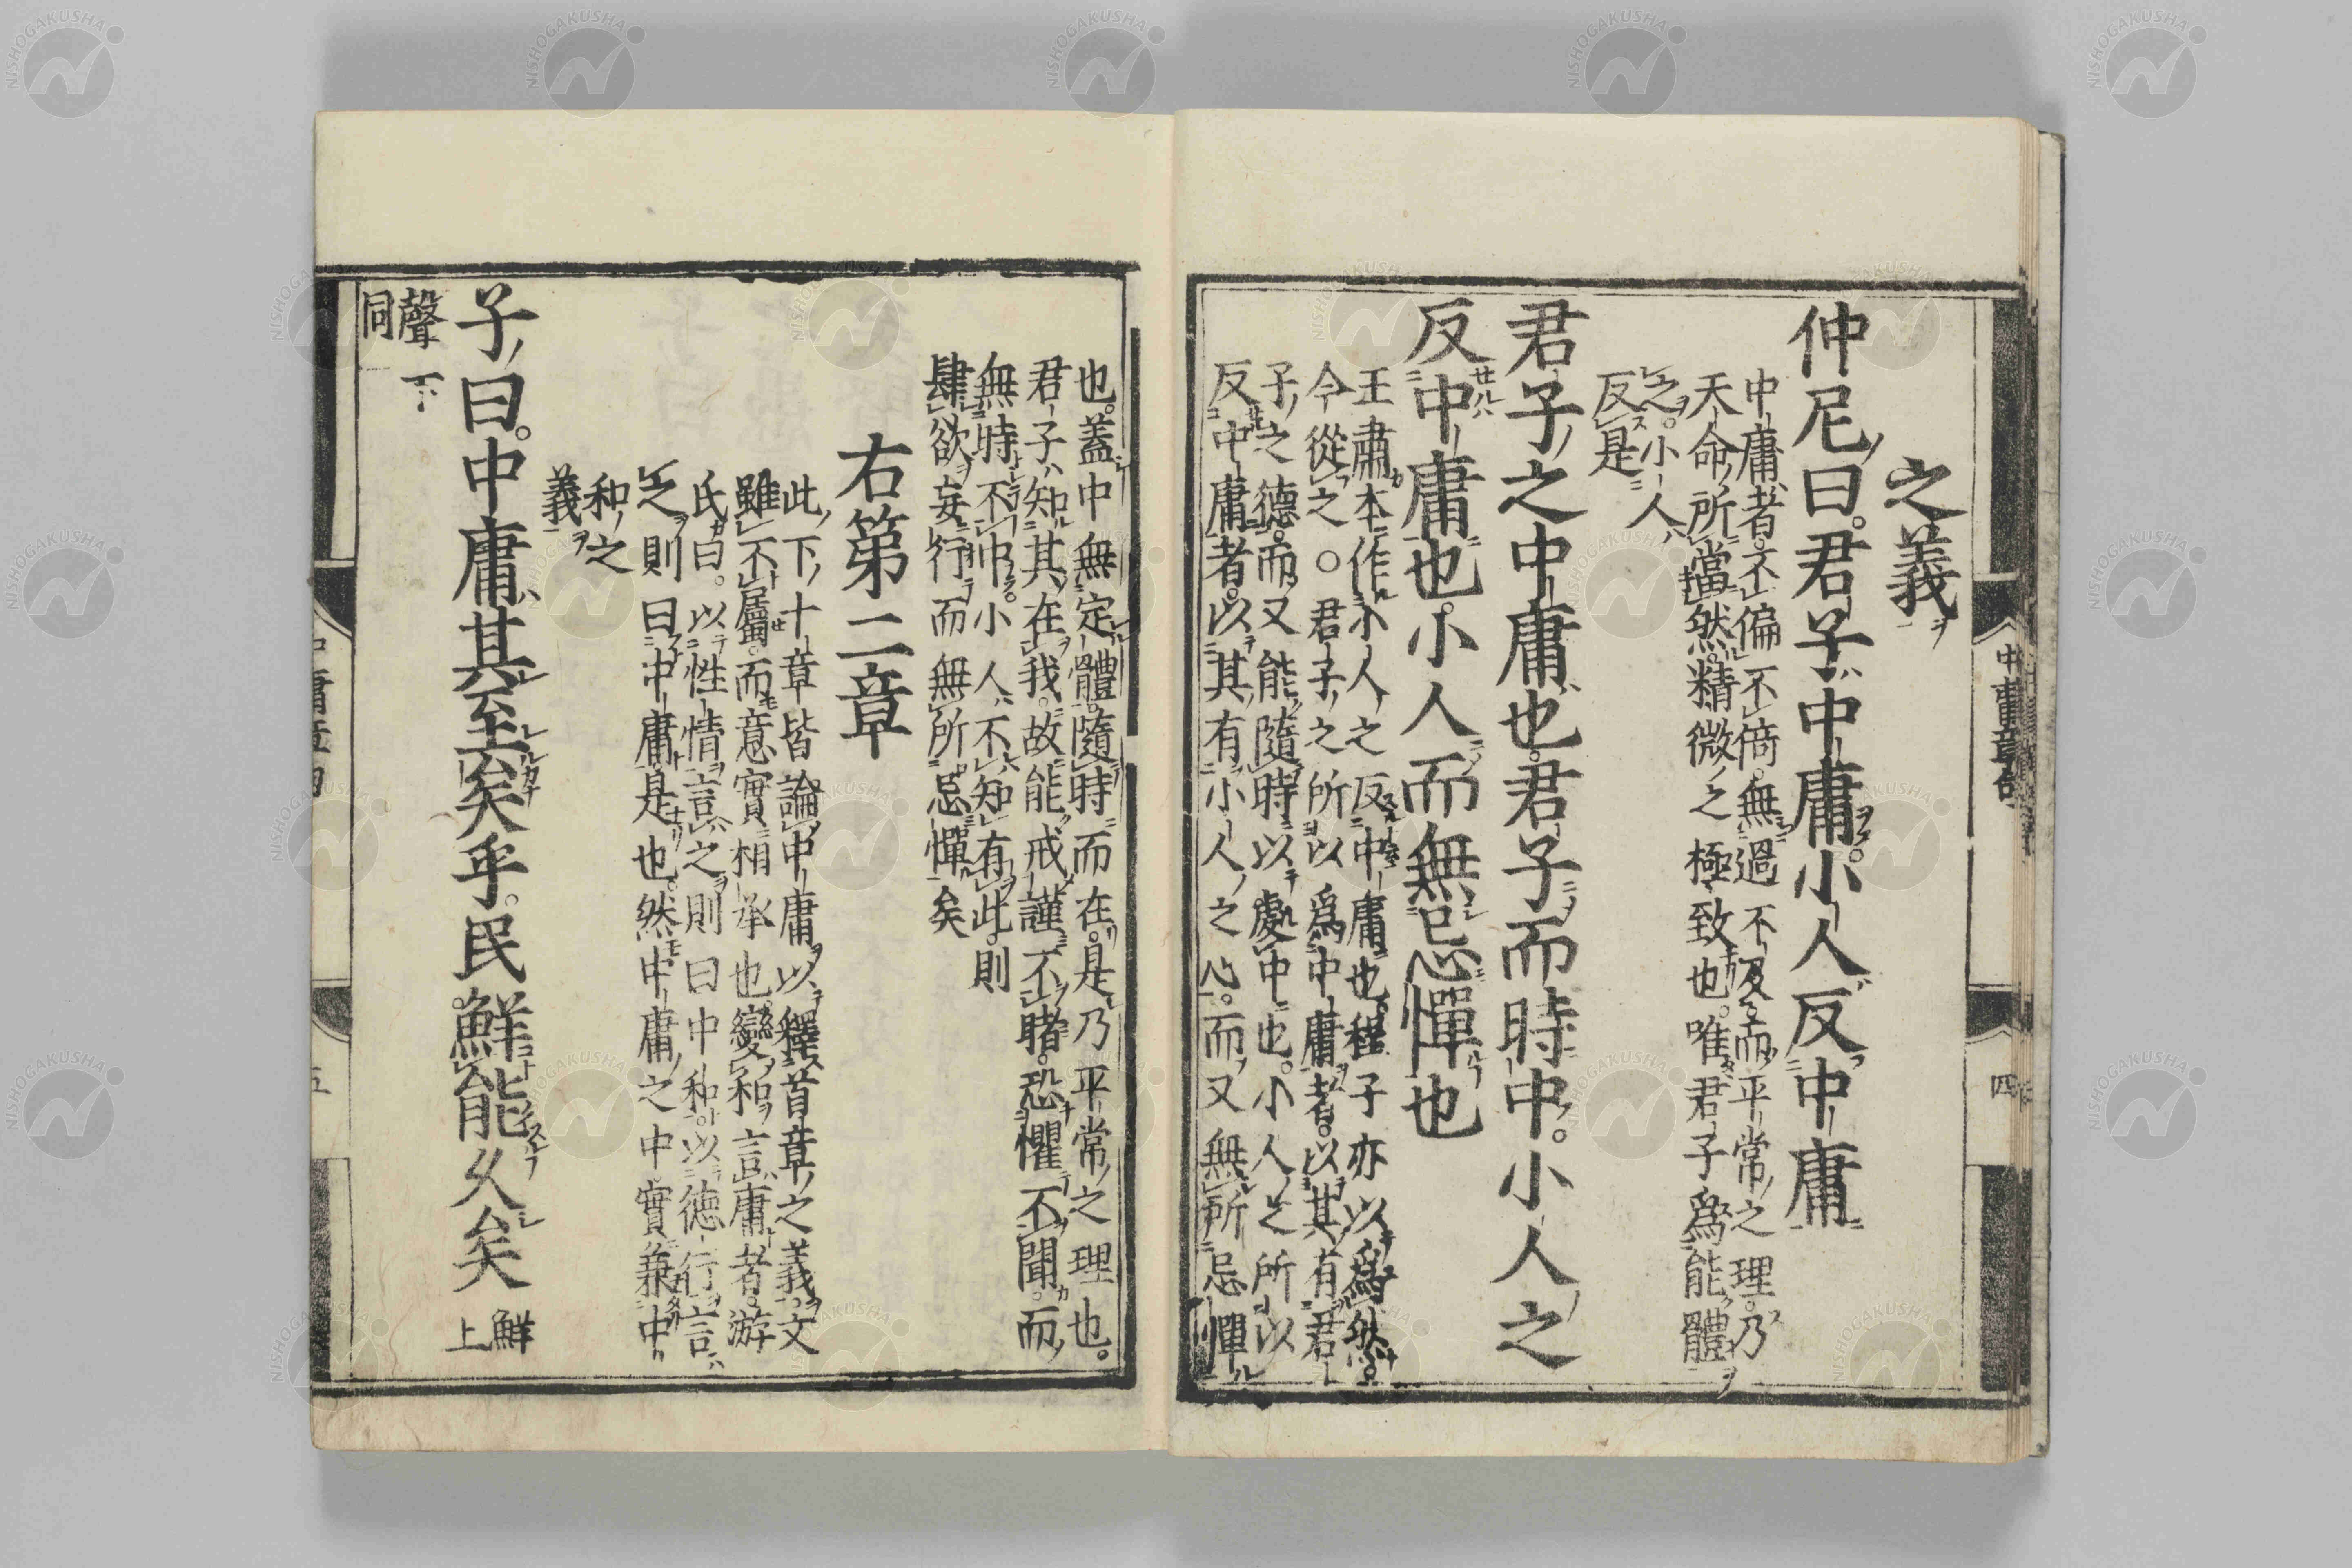 之義
仲尼曰。君子中庸。小人反中庸
中庸者。不偏不倚。無過不及。而平常之理。乃
天命所當然。精微之極致也。唯君子爲能體
之。小人
反是
君子之中庸也。君子而時中。小人之
反中庸也。小人而無忌憚也
王肅本作小人之反中庸也。程子亦以爲然。
今從之○君子之所以爲中庸者。以其有君
子之德。而又能隨時以處中也。小人之所以
反中庸者。以其有小人之心。而又無所忌憚
中庸章句
四
也。蓋中無定體。隨時而在。是乃平常之理也。
君子知其在我。故能戒謹不睹。恐懼不聞。而
無時不中。小人不知有此。則
肆欲妄行而無所忌憚矣
右第二章
此下十章皆論中庸以釋首章之義。文
雖不屬。而意實相承也。變和言庸者。游
氏曰。以性情言之則曰中和。以德行言
之則曰中庸是也。然中庸之中實兼中
和之
義
子曰。中庸其至矣乎。民鮮能久矣
鮮
上
聲
下
同
五
NISHOGAKUSHA